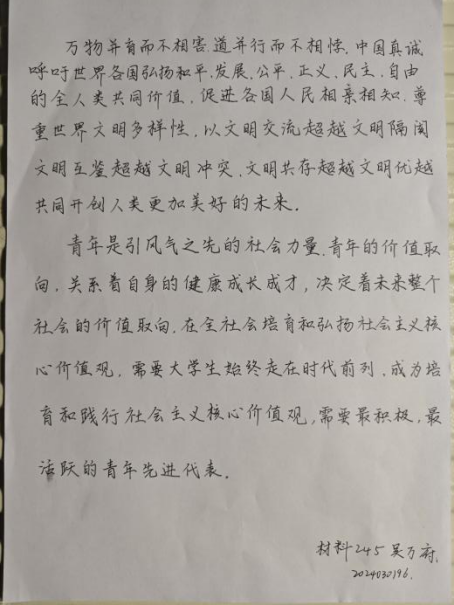 万物并育而不相害,道并行而不相悖、中国真诚
呼吁世界各国弘扬和平、发展、公平、正义、民主、自由
的全人类共同价值,促进各国人民相亲相知、尊
重世界文明多样性,以文明交流超越文明隔阂
文明互鉴超越文明冲突、文明共存超越文明优越
共同开创人类更加美好的未来。
青年是引风气之先的社会力量,青年的价值取
向,关系着自身的健康成长成才,决定着未来整个
社会的价值取向,在全社会培育和弘扬社会主义核
心价值观,需要大学生始终走在时代前列、成为培
育和践行社会主义核心价值观,需要最积极,最
活跃的青年先进代表。
材料245 吴万府.
2024030196.